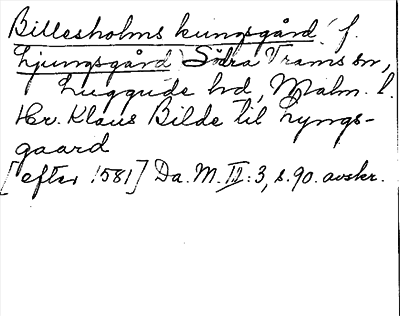 Billesholms kungsgård, f.
Ljungsgård Södra Trams sn,
Luggude hd, Malm. l.
Hr. Klaus Bilde til Lyngs-
gaard
[efter 1581] Da. M. II:3, s. 90. avskr.